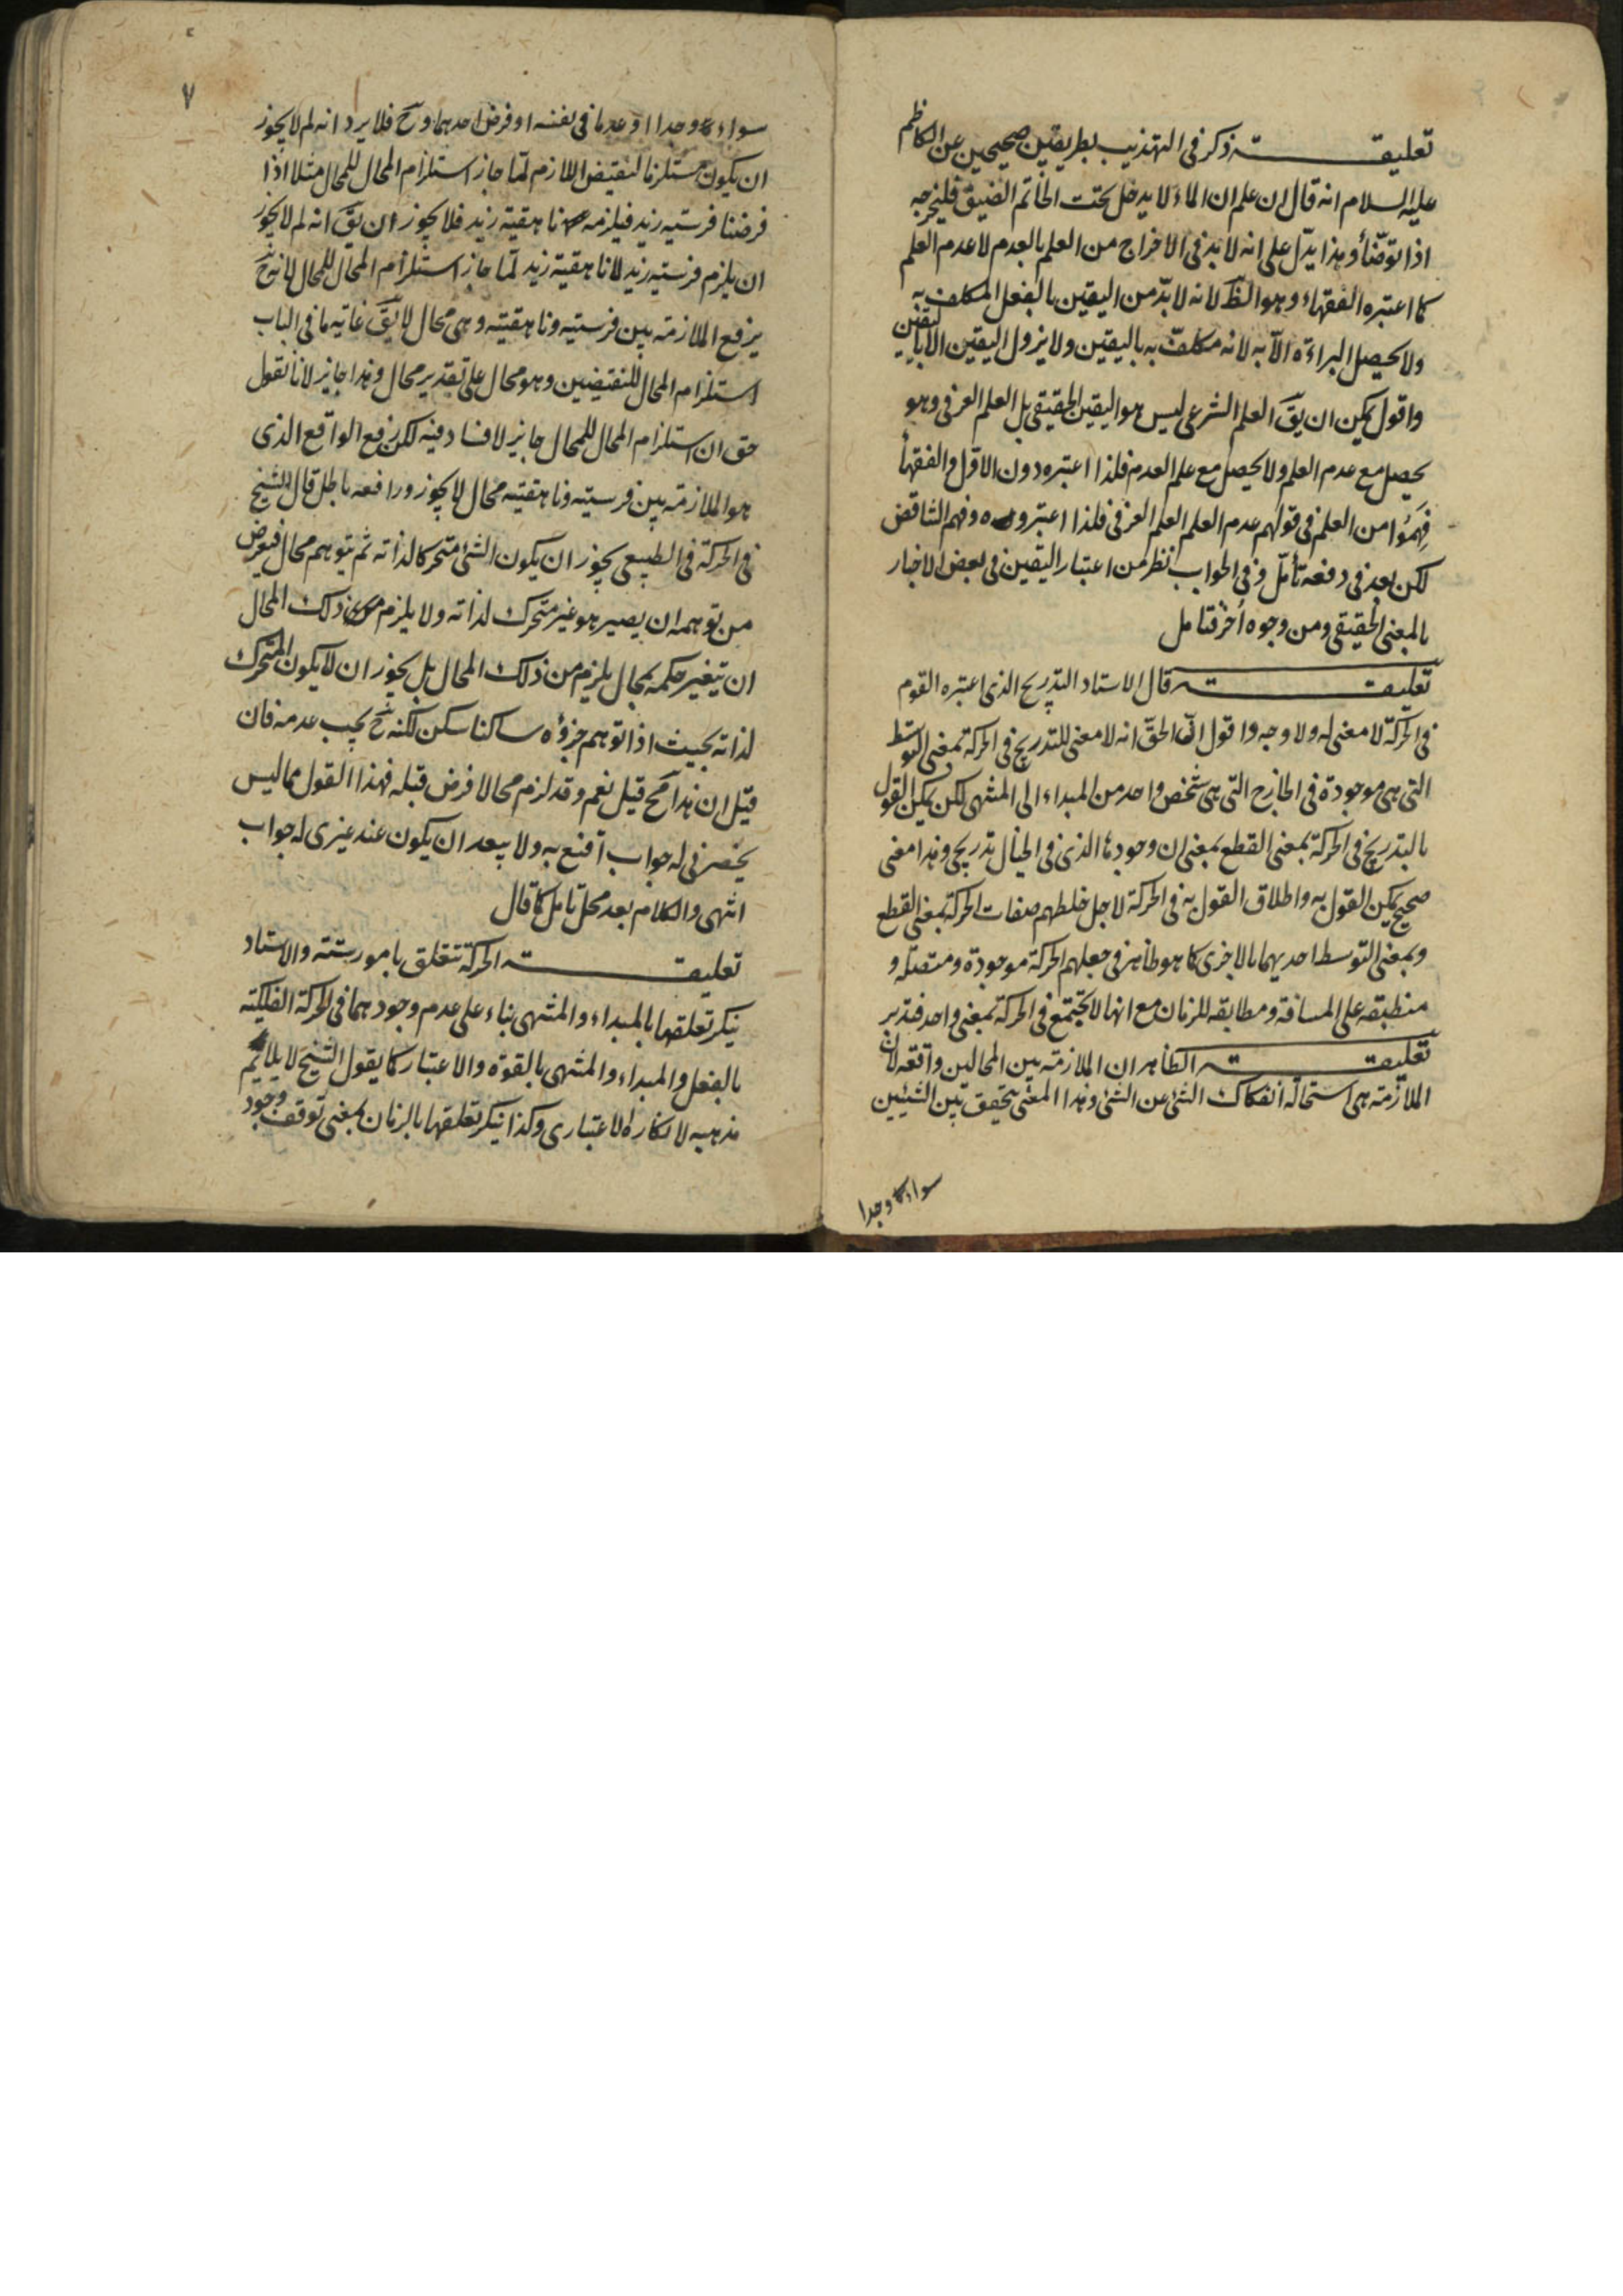 تعليقة ذكر في التهذيب بطريقين صحيحين عن الكاظم
عليه السلام انه قال ان علم ان الماء لا يدخل تحت الخاتم الضيق فليخرجه
اذا توضّأ وهذا يدّل على انه لا بد في الاخراج من العلم بالعدم لا عدم العلم
كما اعتبره الفقهاء وهو الظّ لانه لا بدّ من اليقين بالفعل المكلف به
ولا يحصل البراءة الّا به لانه مكلفّ به باليقين ولا يزول اليقين الا باليقين
واقول يمكن ان يقّ العلم الشرعي ليس هو اليقين الحقيقي بل العلم العرفي وهو
يحصل مع عدم العلم ولا يحصل مع علم العدم فلذا اعتبره دون الاول والفقهأ
فَهِمَوُا من العلم في قولهم عدم العلم العلم العرفي فلذا اعتبروه وفهم التناقض
لكن بعد في دفعه تأمّل وفي الجواب نظر من اعتبار اليقين في بعض الاخبار
بالمعنى الحقيقي ومن وجوه أخر فتامل
تعليقة قال الاستاد التدريج الذي اعتبره القوم
في الحركة لا معنى له ولا وجه واقول انّ الحقّ انه لا معنى للتدريج في الحركة بمعنى التوسط
التي هي موجودة في الخارج التي هي شخص واحد من المبداء الى المنتهى لكن يمكن القول
بالتدريج في الحركة بمعنى القطع بمعنى ان وجودها الذي في الخيال تدريجي وهذا معنى
صحيح يمكن القول به واطلاق القول به في الحركة لاجل خلطهم صفات الحركة بمعنى القطع
وبمعنى التوسط احديهما بالاخرى كما هو ظاهر في جعلهم الحركة موجودة ومتصله و
منطبقه على المسافة ومطابقه للزمان مع انها لا تجتمع في الحركة بمعنى واحد فتدبر
تعليقة الظاهر ان الملازمة بين المحالين واقعه لان
الملازمة هي استحالة انفكاك الشئ عن الشئ وهذا المعنى يتحقق بين الشيئين
سواء وجدا
٧
سواء وجدا او عدما في نفسه او فرض احدهما وحّ فلا يرد انه لم لا يجوز
ان يكون مستلزما لنقيض اللازم لمّا جاز استلزام المحال للمحال مثلا اذا
فرضنا فرسيه زيد فيلزمه ناهقية زيد فلا يجوز ان يقّ انه لم لا يجوز
ان يلزم فرسيه زيد لا ناهقية زيد لمّا جاز استلزام المحال للمحال لانه حّ
يرفع الملازمة بين فرسيته وناهقيته وهي محال لا يقّ غاية ما في الباب
استلزام المحال للنقيضين وهو محال على تقدير محال وهذا جايز لانا نقول
حق ان استلزام المحال للمحال جايز لا فساد فيه لكن رفع الواقع الذي
هو الملازمة بين فرسيته وناهقيته محال لا يجوز ورافعه باطل قال الشيخ
في الحركة في الطبيعي يجوز ان يكون الشئ متحركا لذاته ثم يتوهم محال فيعرض
من توهمه ان يصير هو غير متحرك لذاته ولا يلزم من ذلك المحال
ان يتغير حكمه بمحال يلزم من ذلك المحال بل يجوز ان لا يكون المتحرك
لذاته بحيث اذا توهم جزؤه ساكنا سكن لكنه حّ يجب عدمه فان
قيل ان هذا محّ قيل نعم وقد لزم محالا فرض قبله فهذا القول مما ليس
يحضرني له جواب اقنع به ولا يبعد ان يكون عند غيري له جواب
انتهى والكلام بعد محل تامل كما قال
تعليقة الحركة تتعلق بامور ستة والاستاد
ينكر تعلقها بالمبداء والمنتهى بناء على عدم وجودهما في الحركة الفلكيّة
بالفعل والمبداء والمنتهى بالقوة والاعتبار كما يقول الشيخ لا يلايم
مذهبه لانكاره الاعتباري وكذا ينكر تعلقها بالزمان بمعنى توقف وجود